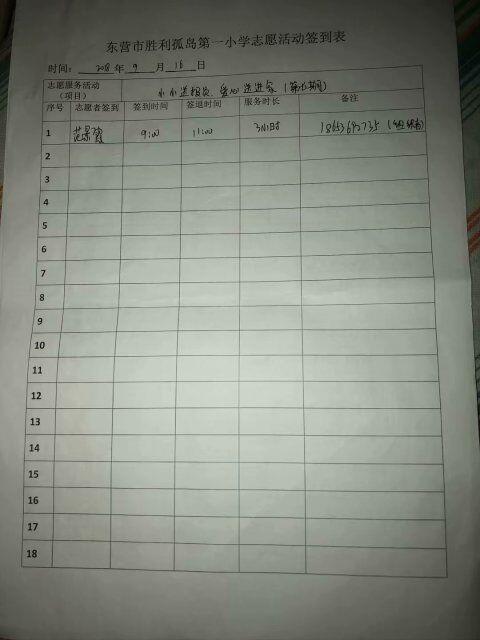 东营市胜利孤岛第一小学志愿活动签到表
时间： 2018 年 9 月 16 日
志愿服务活动（项目） 小小送相袋，爱心送进家（第七期）
序号 志愿者签到 签到时间 签退时间 服务时长 备注
1 范景霞 9:00 11:00 3小时
2
3
4
5
6
7
8
9
10
11
12
13
14
15
16
17
18